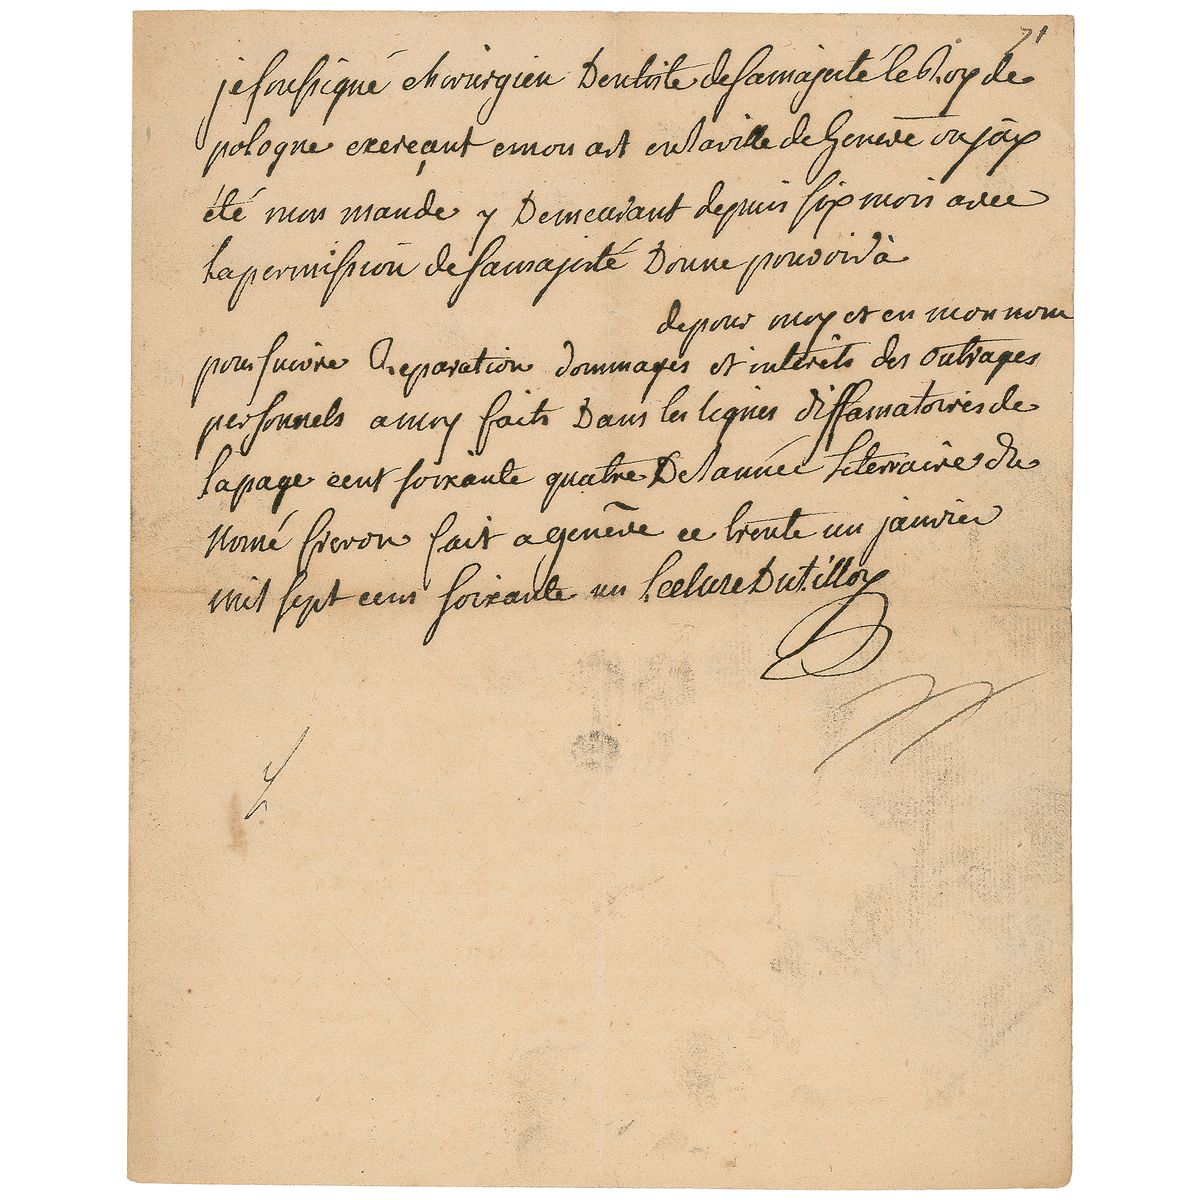 71
je soussigné chirurgien Dentiste de sa majesté le Roy de
pologne exerçant mon art en la ville de Genève ou j'ay
été mandé y Demeurant depuis six mois avec
la permission de sa majesté Donne pouvoir à
de pour moy et en mon nom
poursuivre Reparation dommages et interêts des outrages
personnels a moy faits Dans les lignes diffamatoires de
la page cent soixante quatre De l'année literaire du
nomé freron fait a genêve ce trente un janvier
mil sept cens soixante un Lecluse Dutilloy